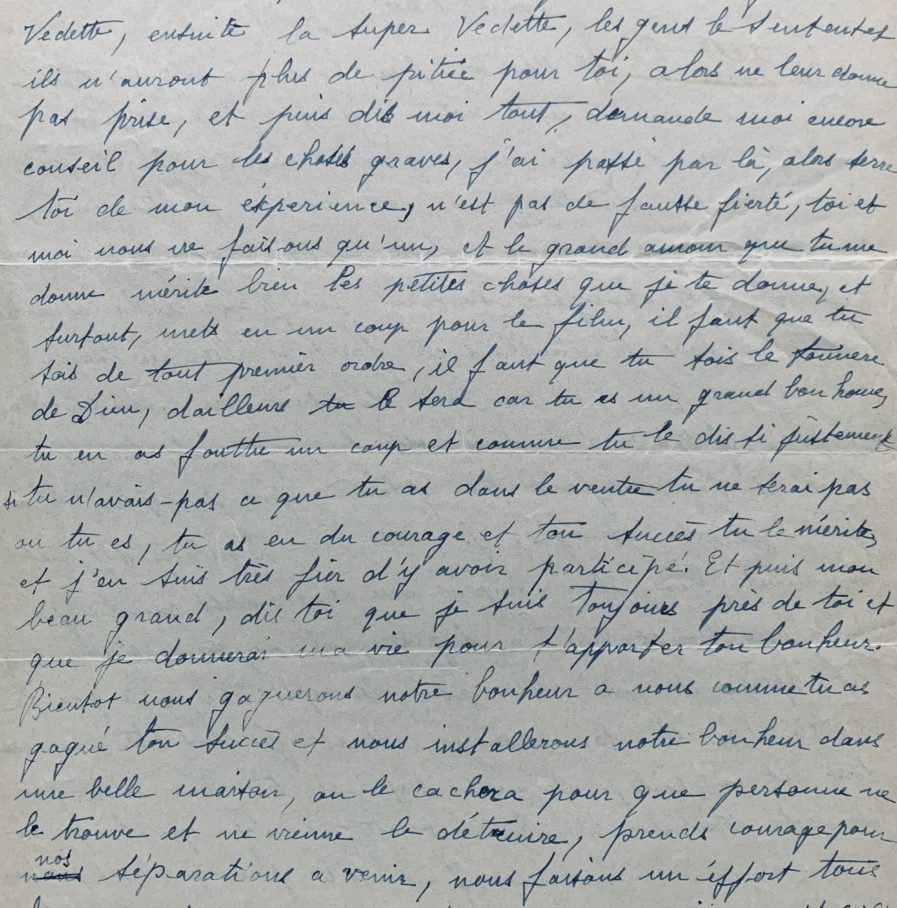 Vedette, ensuite la super Vedette, les gens le sentent et
ils n'auront plus de pitiée pour toi, alors ne leur donne
pas prise, et puis dis moi tout, demande moi encore
conseil pour les choses graves, j'ai passé par là, alors serre
toi de mon éxperience, n'est pas de fausse fierté, toi et
moi nous ne faisons qu'un, et le grand amour que tu me
donne mérite bien les petites choses que je te donne, et
surtout, mets en un coup pour le film, il faut que tu
sois de tout premier ordre, il faut que tu sois le tonnere
de Dieu, dailleurs tu le sera car tu es un grand bonhome,
tu en as fouttu un coup et comme tu le dis si justement
si tu n'avais-pas ce que tu as dans le ventre tu ne serai pas
ou tu es, tu as eu du courage et ton succès tu le mérite,
et j'en suis très fier d'y avoir participé. Et puis mon
beau grand, dis toi que je suis toujours près de toi et
que je donnerai ma vie pour t'apporter ton bonheur.
Bientot nous gagnerons notre bonheur a nous comme tu as
gagné ton succès et nous installerons notre bonheur dans
une belle maison, on le cachera pour que personne ne
le trouve et ne vienne le détruire, prends courage pour
nos séparations a venir, nous faisons un éffort tous